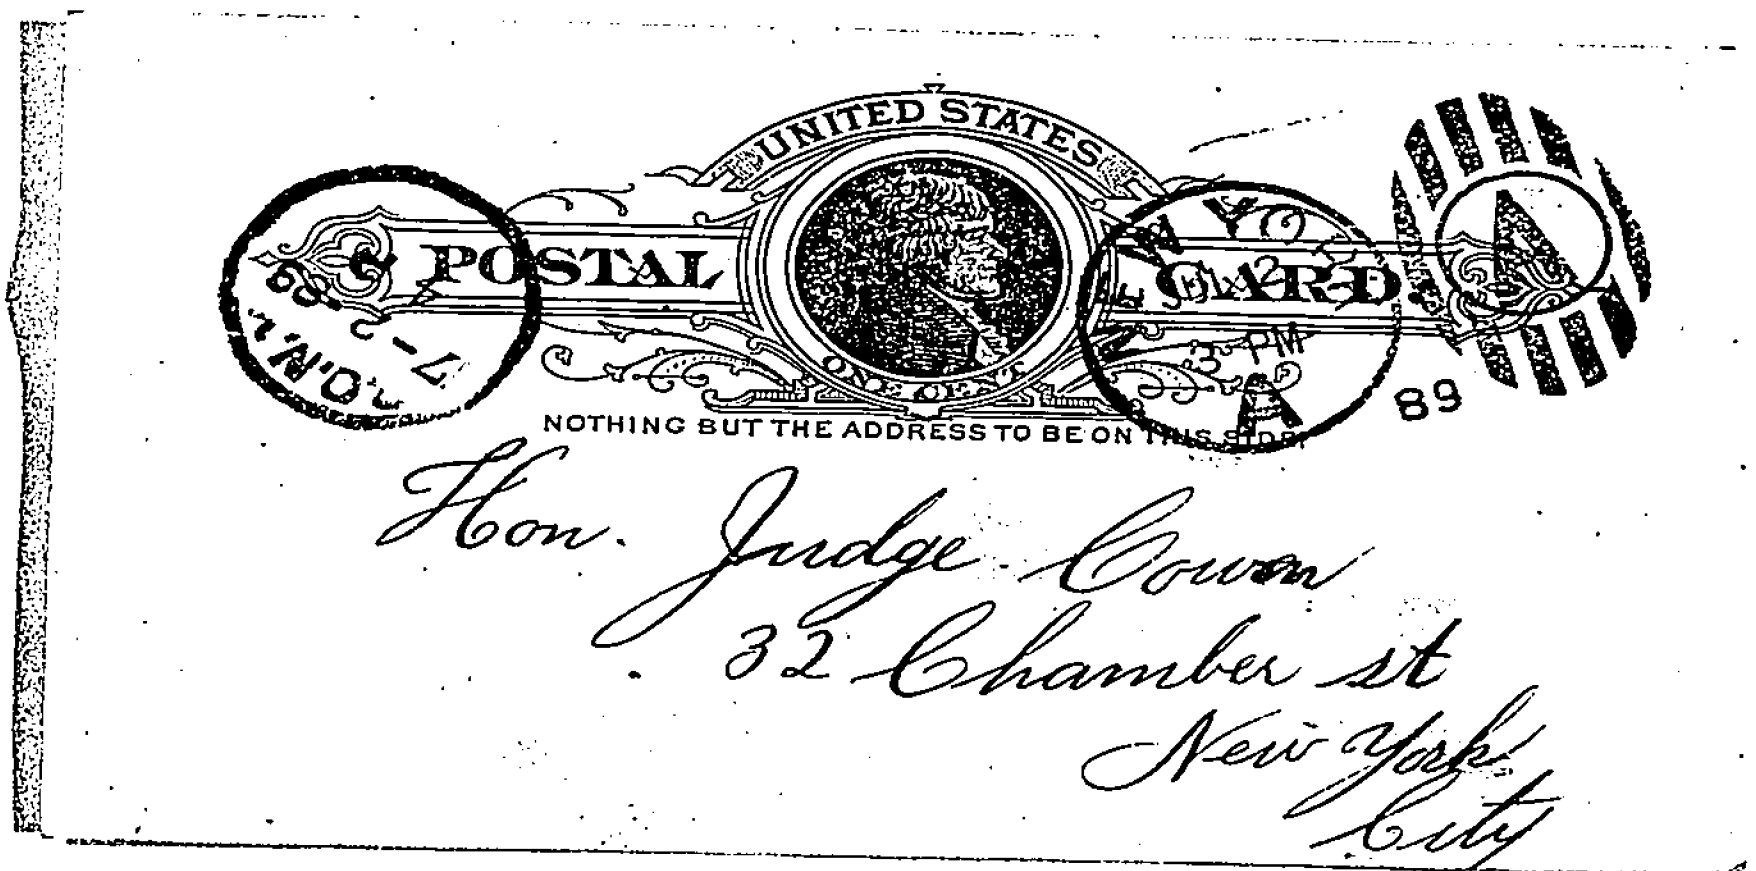 UNITED STATES
POSTAL CARD.
ONE CENT
NOTHING BUT THE ADDRESS TO BE ON THIS SIDE.
3 PM
89
7-2-89
Hon. Judge Cowen
32 Chamber st
New York
City